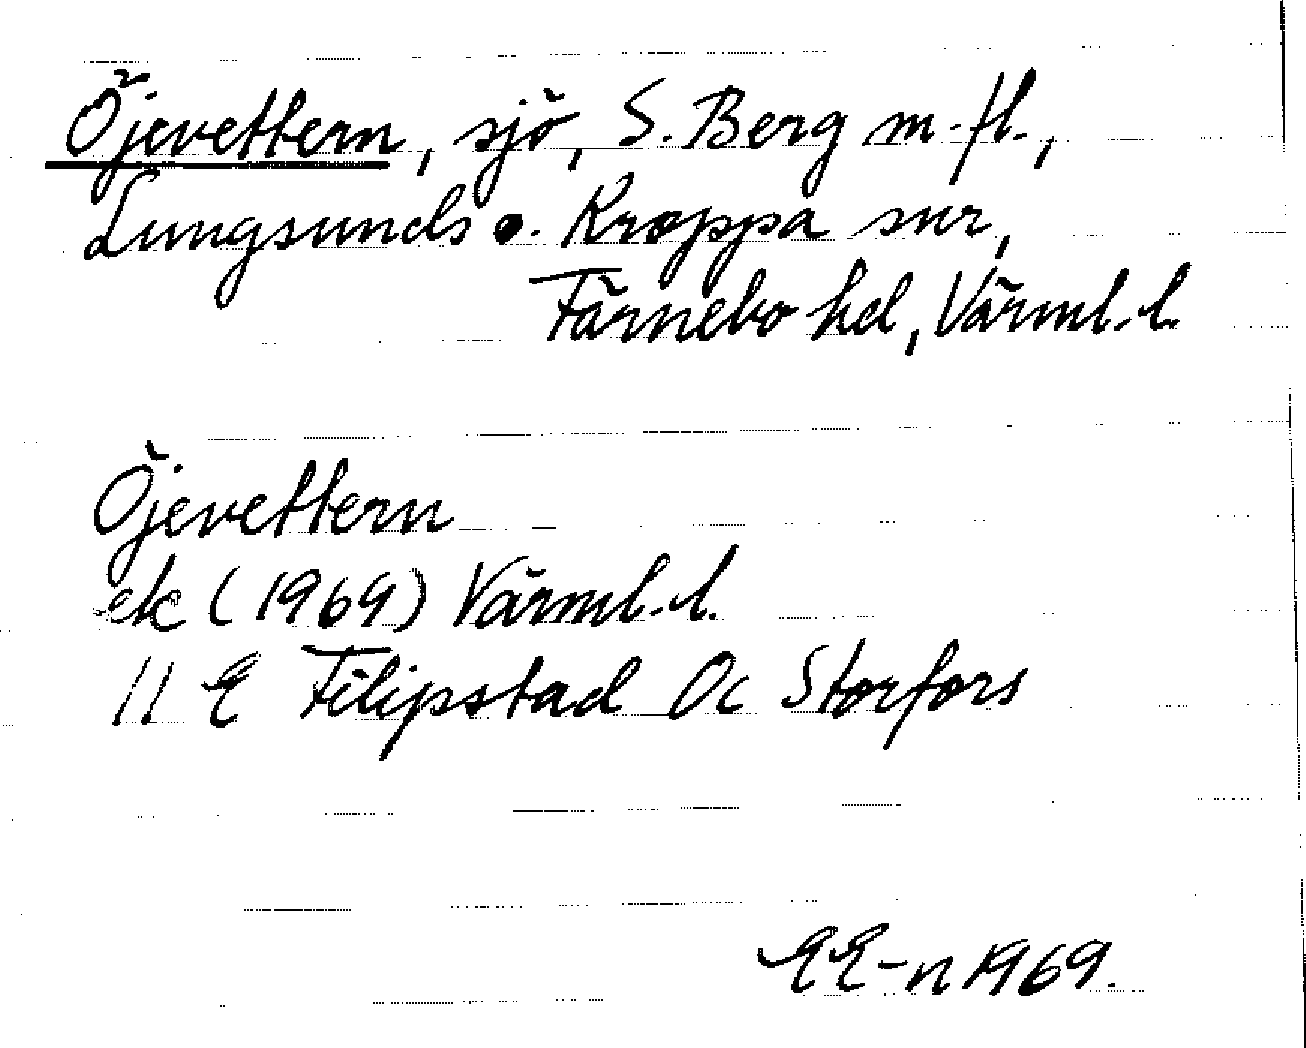 Öjevettern, sjö, S. Berg m.fl.,
Lungsunds o. Kroppa snr,
Färnebo hd, Värml. l.
Öjevettern
ek (1969) Värml. l.
11 E Filipstad 0c Storfors
EE-n 1969.